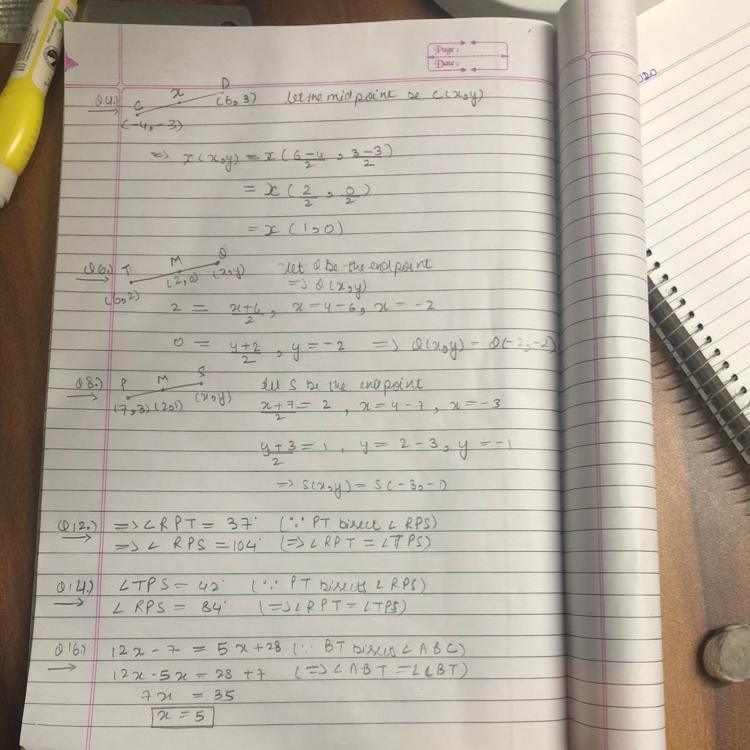 Page:
Date:
020
Q4.) C x D (6,3) Let the midpoint be C(x,y)
(-4,-3)
=> x(x,y) = x(6-4/2, 3-3/2)
= x(2/2, 0/2)
= x(1,0)
Q6.) T M Q Let Q be the endpoint
(6,2) (2,0) (x,y) => Q(x,y)
2 = x+6/2, x=4-6, x=-2
0 = y+2/2, y=-2 => Q(x,y) = Q(-2,-2)
Q8.) P M S Let S be the endpoint
(7,3) (2,1) (x,y) x+7/2 = 2, x=4-7, x=-3
y+3/2 = 1, y=2-3, y=-1
=> S(x,y) = S(-3,-1)
Q12.) => ∠RPT = 37° (∵ PT bisect ∠RPS)
=> ∠RPS = 104° (=> ∠RPT = ∠TPS)
Q14.) ∠TPS = 42° (∵ PT bisects ∠RPS)
∠RPS = 84° (=> ∠RPT = ∠TPS)
Q16.) 12x-7 = 5x+28 (∵ BT bisects ∠ABC)
12x-5x = 28+7 (=> ∠ABT = ∠CBT)
7x = 35
x = 5